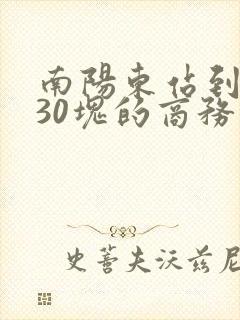 南陽東佔到
30塊的商務
史蒂夫沃兹尼